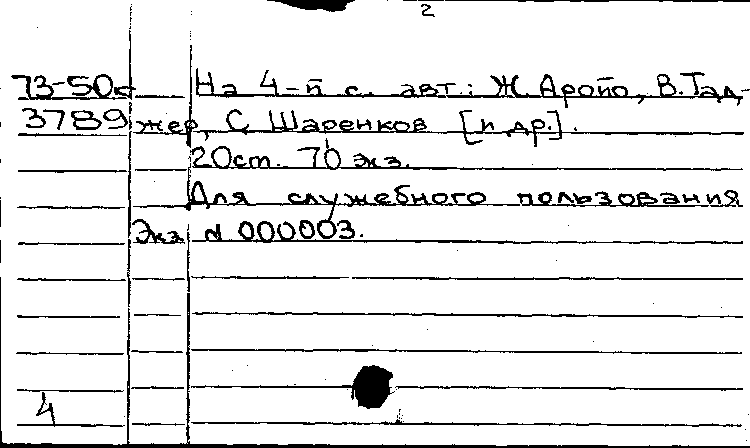 2
73-50с На 4-й с. авт.: Ж. Аройо, В. Тад-
3789 жер, С. Шаренков [и др.].
20см. 70 экз.
Для служебного пользования
Экз N 000003.
4